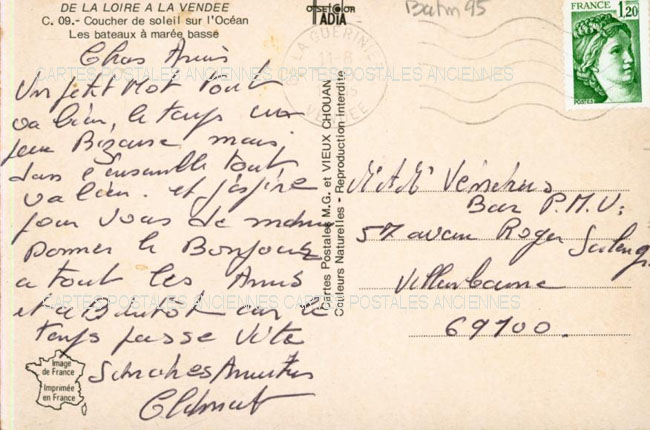 DE LA LOIRE A LA VENDEE
C. 09.- Coucher de soleil sur l'Océan
Les bateaux à marée basse
Chers Amis
Un petit Mot Tout
va bien, le temps un
peu Bizarre mais
dans l'ensemble tout
va bien. et j'espère
pour vous de même
Donner le Bonjour
a tout les Amis
et a Bientôt car le
temps passe vite
Amities
Image
de France
Imprimée
en France
Cartes Postales M.G. et VIEUX CHOUAN
Couleurs Naturelles - Reproduction interdite
OFFSET COLOR
ARTAUD
Batm 95
LA GUERINIERE
VENDEE
REPUBLIQUE FRANÇAISE
1,20
POSTES
Mr & Me
Bar P.M.U.
57 avenue Roger Salengro
Villeurbanne
69100.
CARTES POSTALES ANCIENNES
CARTES POSTALES ANCIENNES
CARTES POSTALES ANCIENNES
CARTES POSTALES ANCIENNES